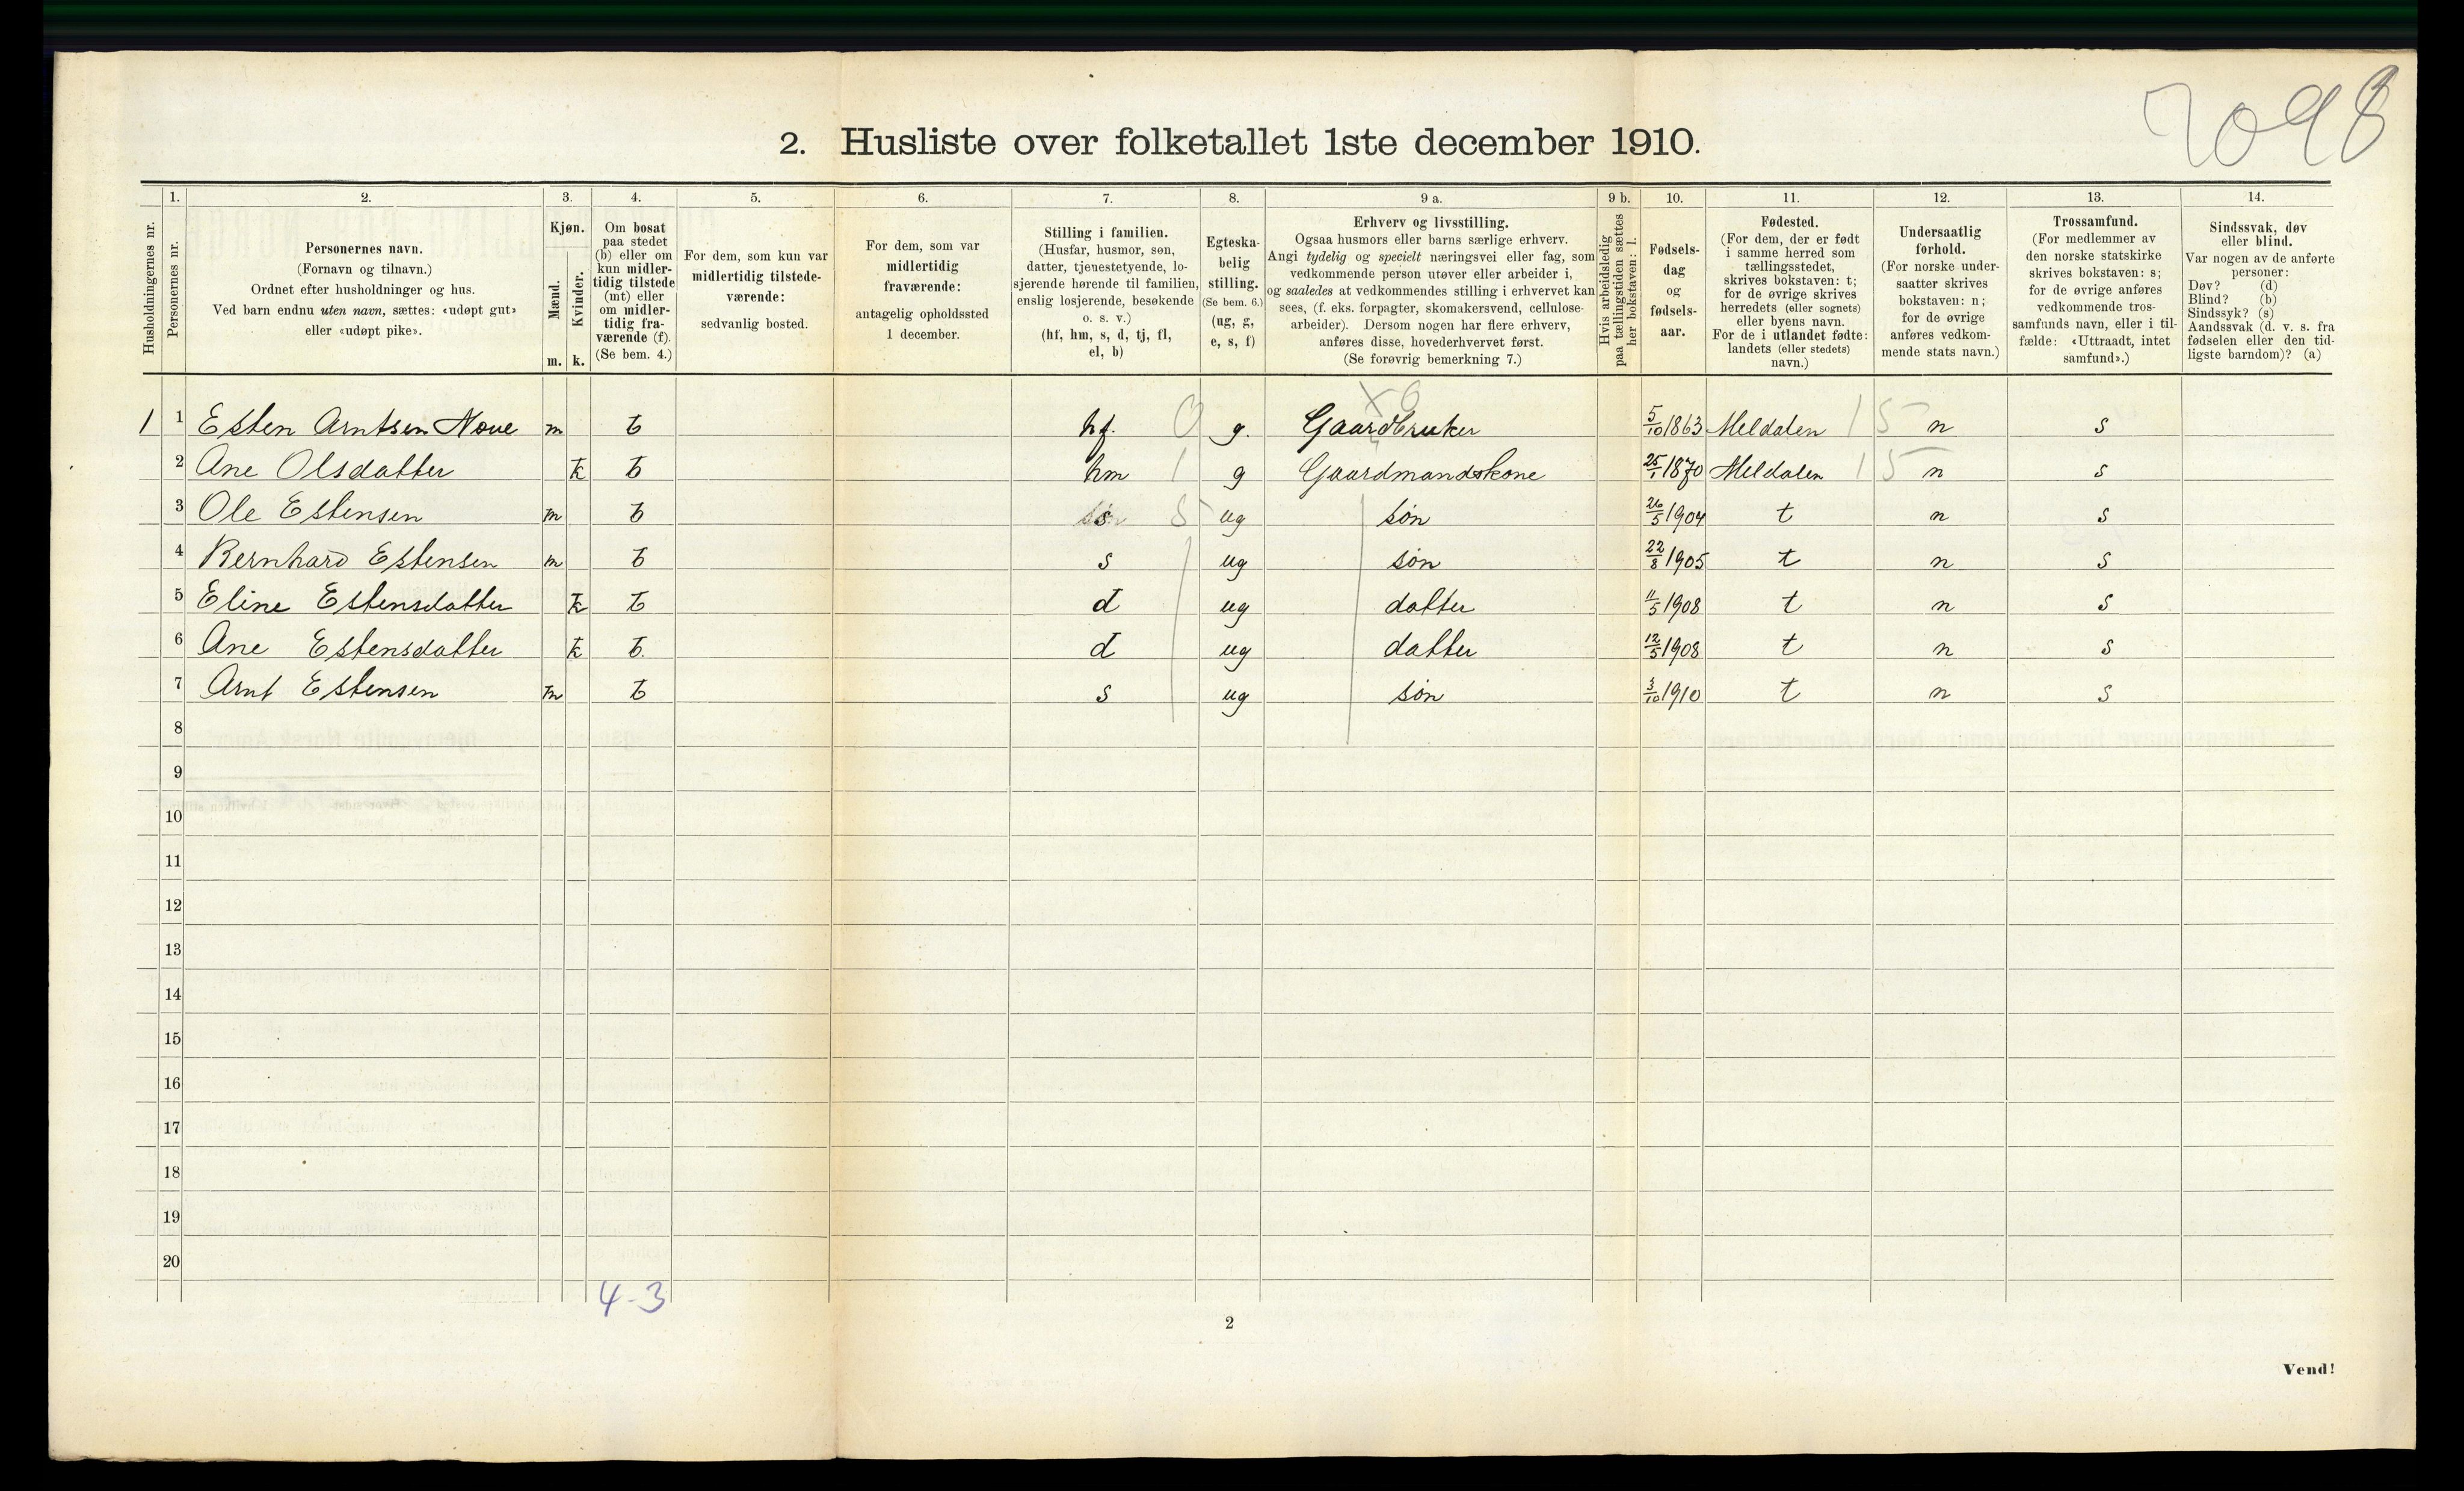 2098
2. Husliste over folketallet 1ste december 1910.
1. 2. 3. 4. 5. 6. 7. 8. 9 a. 9 b. 10. 11. 12. 13. 14.
Husholdningernes nr.
Personernes nr.
Personernes navn.
(Fornavn og tilnavn.)
Ordnet efter husholdninger og hus.
Ved barn endnu uten navn, sættes: «udøpt gut»
eller «udøpt pike».
Kjøn.
Mænd.
Kvinder.
m. k.
Om bosat
paa stedet
(b) eller om
kun midler-
tidig tilstede
(mt) eller
om midler-
tidig fra-
værende (f).
(Se bem. 4.)
For dem, som kun var
midlertidig tilstede-
værende:
sedvanlig bosted.
For dem, som var
midlertidig
fraværende:
antagelig opholdssted
1 december.
Stilling i familien.
(Husfar, husmor, søn,
datter, tjenestetyende, lo-
sjerende hørende til familien,
enslig losjerende, besøkende
o. s. v.)
(hf, hm, s, d, tj, fl,
el, b)
Egteska-
belig
stilling.
(Se bem. 6.)
(ug, g,
e, s, f)
Erhverv og livsstilling.
Ogsaa husmors eller barns særlige erhverv.
Angi tydelig og specielt næringsvei eller fag, som
vedkommende person utøver eller arbeider i,
og saaledes at vedkommendes stilling i erhvervet kan
sees, (f. eks. forpagter, skomakersvend, cellulose-
arbeider). Dersom nogen har flere erhverv,
anføres disse, hovederhvervet først.
(Se forøvrig bemerkning 7.)
Hvis arbeidsledig
paa tællingstiden sættes
her bokstaven: l.
Fødsels-
dag
og
fødsels-
aar.
Fødested.
(For dem, der er født
i samme herred som
tællingsstedet,
skrives bokstaven: t;
for de øvrige skrives
herredets (eller sognets)
eller byens navn.
For de i utlandet fødte:
landets (eller stedets)
navn.)
Undersaatlig
forhold.
(For norske under-
saatter skrives
bokstaven: n;
for de øvrige
anføres vedkom-
mende stats navn.)
Trossamfund.
(For medlemmer av
den norske statskirke
skrives bokstaven: s;
for de øvrige anføres
vedkommende tros-
samfunds navn, eller i til-
fælde: «Uttraadt, intet
samfund».)
Sindssvak, døv
eller blind.
Var nogen av de anførte
personer:
Døv? (d)
Blind? (b)
Sindssyk? (s)
Aandssvak (d. v. s. fra
fødselen eller den tid-
ligste barndom)? (a)
1 1 Esten Arntsen m b hf. 0 g. X 6 Gaardbruker 5/10 1863 Meldalen 15 n s
2 Ane Olsdatter k b hm 1 g Gaardmandskone 25/1 1870 Meldalen 15 n s
3 Ole Estensen m b s 5 ug søn 26/5 1904 t n s
4 Bernhard Estensen m b s ug søn 22/8 1905 t n s
5 Eline Estensdatter k b d ug datter 11/5 1908 t n s
6 Ane Estensdatter k b. d ug datter 12/5 1908 t n s
7 Arnt Estensen m b s ug søn 3/10 1910 t n s
8
9
10
11
12
13
14
15
16
17
18
19
20
4-3
2
Vend!